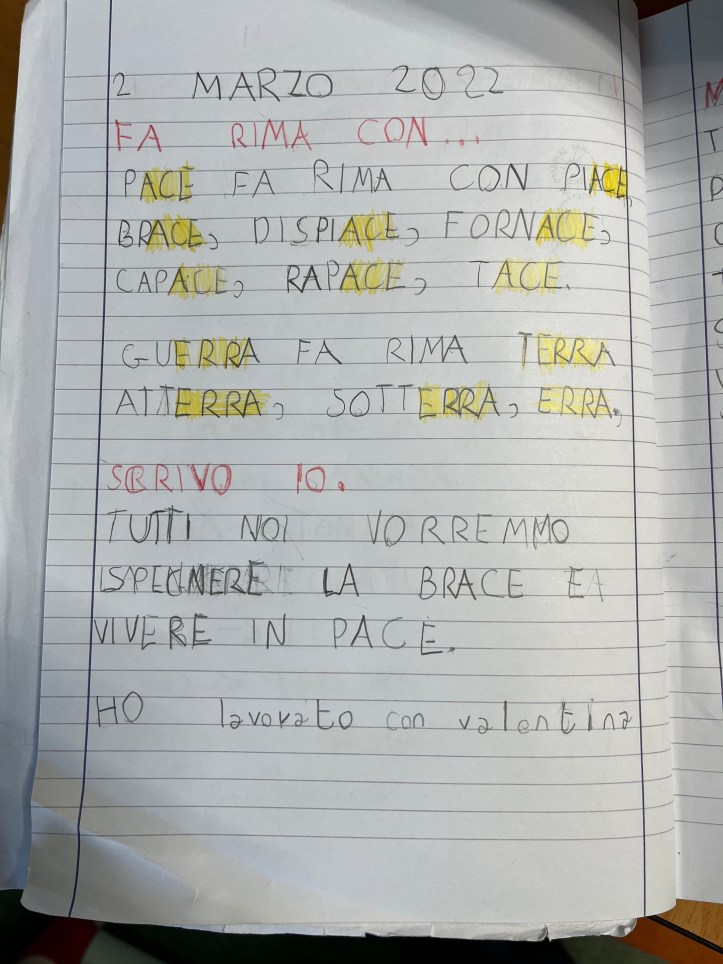 2 MARZO 2022
FA RIMA CON...
PACE FA RIMA CON PIACE,
BRACE, DISPIACE, FORNACE,
CAPACE, RAPACE, TACE.
GUERRA FA RIMA TERRA
ATTERRA, SOTTERRA, ERRA.
SCRIVO IO.
TUTTI NOI VORREMMO
SPEGNERE LA BRACE E
VIVERE IN PACE.
HO lavorato con valentina